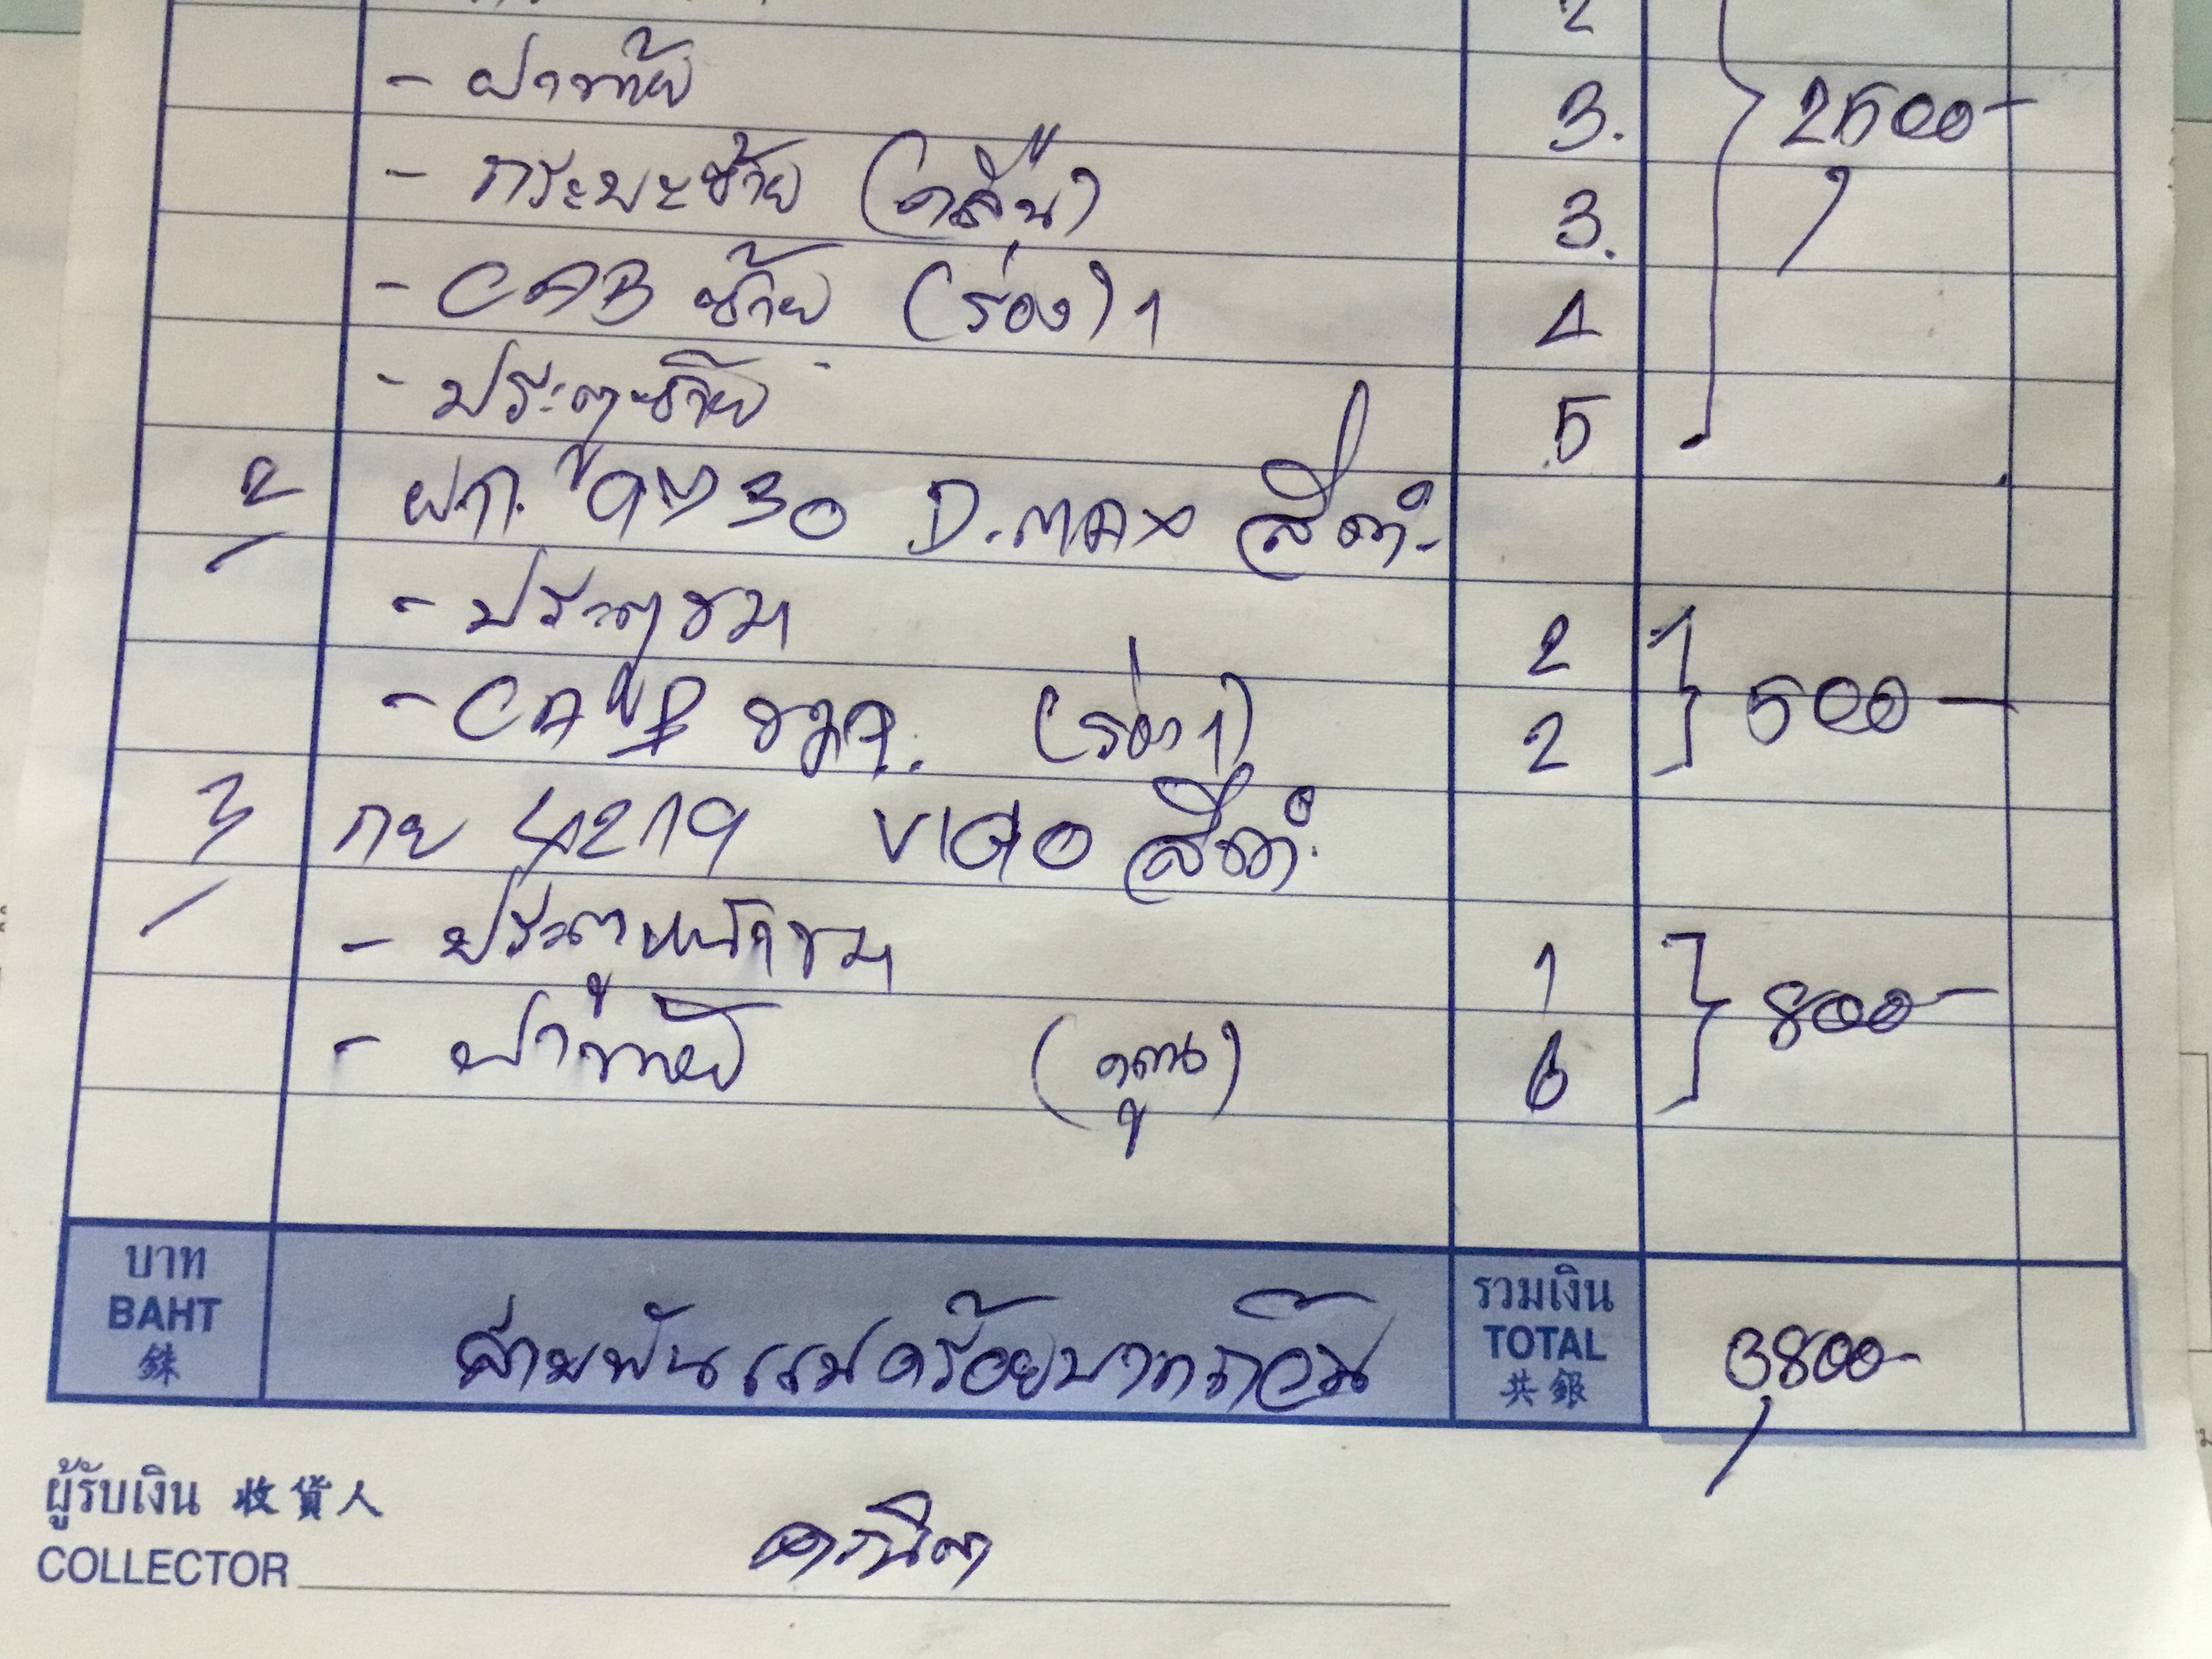 2
- ฝาท้าย 3. 2500-
- กระบะซ้าย (คลื่น) 3.
- CAB ซ้าย (ร่อง) 1 4
- ประตูซ้าย 5
2 ผก. 9730 D.MAX สีดำ
- ประตูขวา 2
- CAB (ร่อง 1) 2 500-
3 กย 4219 VIGO สีดำ
- ประตูหน้าขวา 1 800-
- ฝาท้าย 6
บาท
BAHT
銖
สามพันแปดร้อยบาทถ้วน
รวมเงิน
TOTAL
共銀
3,800-
ผู้รับเงิน 收貨人
COLLECTOR